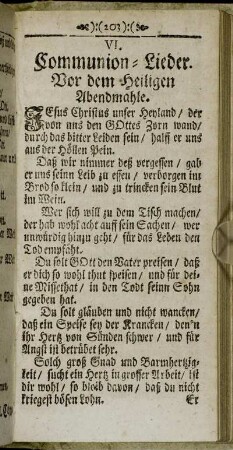 ):(203):(
VI.
Communion-Lieder.
Vor dem Heiligen
Abendmahle.
JEsus Christus unser Heyland / der
von uns den GOttes Zorn wand /
durch das bitter Leiden sein / halff er uns
aus der Höllen Pein.
Daß wir nimmer deß vergessen / gab
er uns seinn Leib zu essen / verborgen im
Brod so klein / und zu trincken sein Blut
im Wein.
Wer sich will zu dem Tisch machen /
der hab wohl acht auff sein Sachen / wer
unwürdig hinzu geht / für das Leben den
Tod empfäht.
Du solt GOtt den Vater preisen / daß
er dich so wohl thut speisen / und für dei-
ne Missethat / in den Todt seinn Sohn
gegeben hat.
Du solt gläuben und nicht wancken /
daß ein Speise sey der Krancken / denen
ihr Hertz von Sünden schwer / und für
Angst ist betrübet sehr.
Solch groß Gnad und Barmhertzig-
keit / sucht ein Hertz in grosser Arbeit / ist
dir wohl / so bleib davon / daß du nicht
kriegest bösen Lohn.
Er